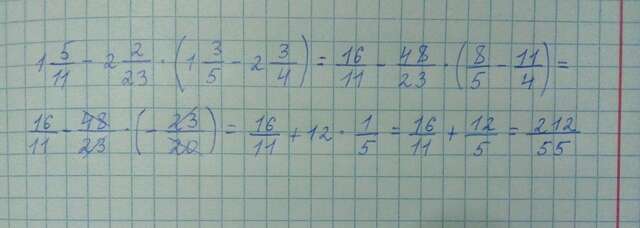 1 5/11 - 2 2/23 · (1 3/5 - 2 3/4) = 16/11 - 48/23 · (8/5 - 11/4) =
16/11 - 48/23 · (- 23/20) = 16/11 + 12 · 1/5 = 16/11 + 12/5 = 212/55